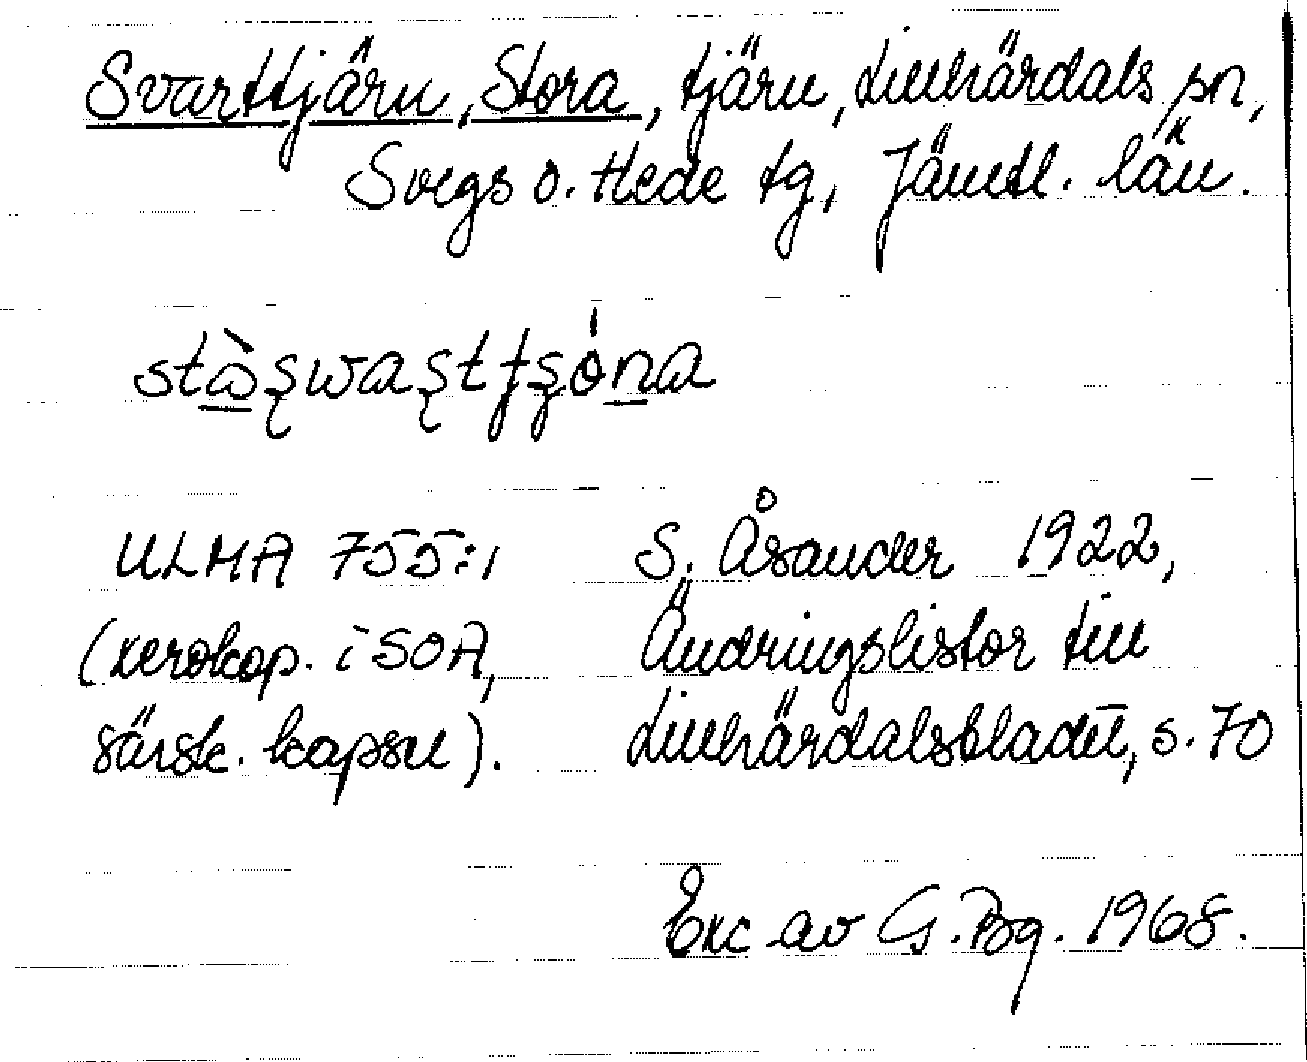 Svarttjärn, Stora, tjärn, Lillhärdals sn,
Svegs o. Hede tg, Jämtl. län.
ULMA 755:1 S. Åsander 1922,
(xerokop. i SOA, Ändringslistor till
särsk. kapsel). Lillhärdalsbladet, s. 70
Exc av G. Bg. 1968.